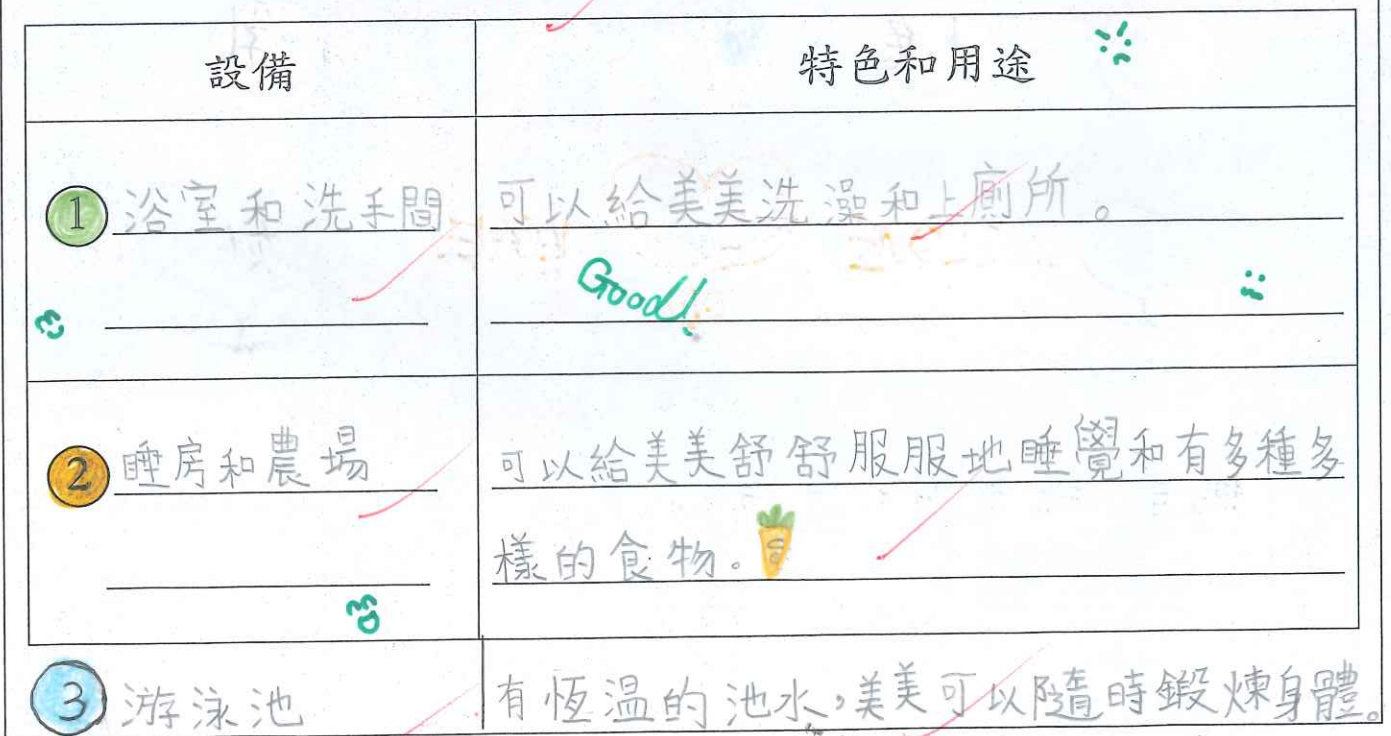 設備 特色和用途
① 浴室和洗手間 可以給美美洗澡和上廁所。
Good!
② 睡房和農場 可以給美美舒舒服服地睡覺和有多種多
樣的食物。
③ 游泳池 有恆温的池水,美美可以隨時鍛煉身體。